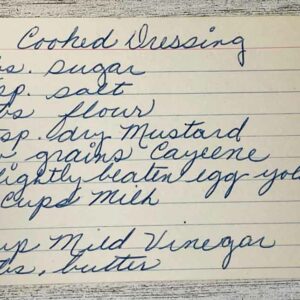 Cooked Dressing
bs. sugar
sp. salt
bs flour
sp. dry Mustard
grains Cayeene
lightly beaten egg yol
Cups Milk
up Mild Vinegar
bs. butter